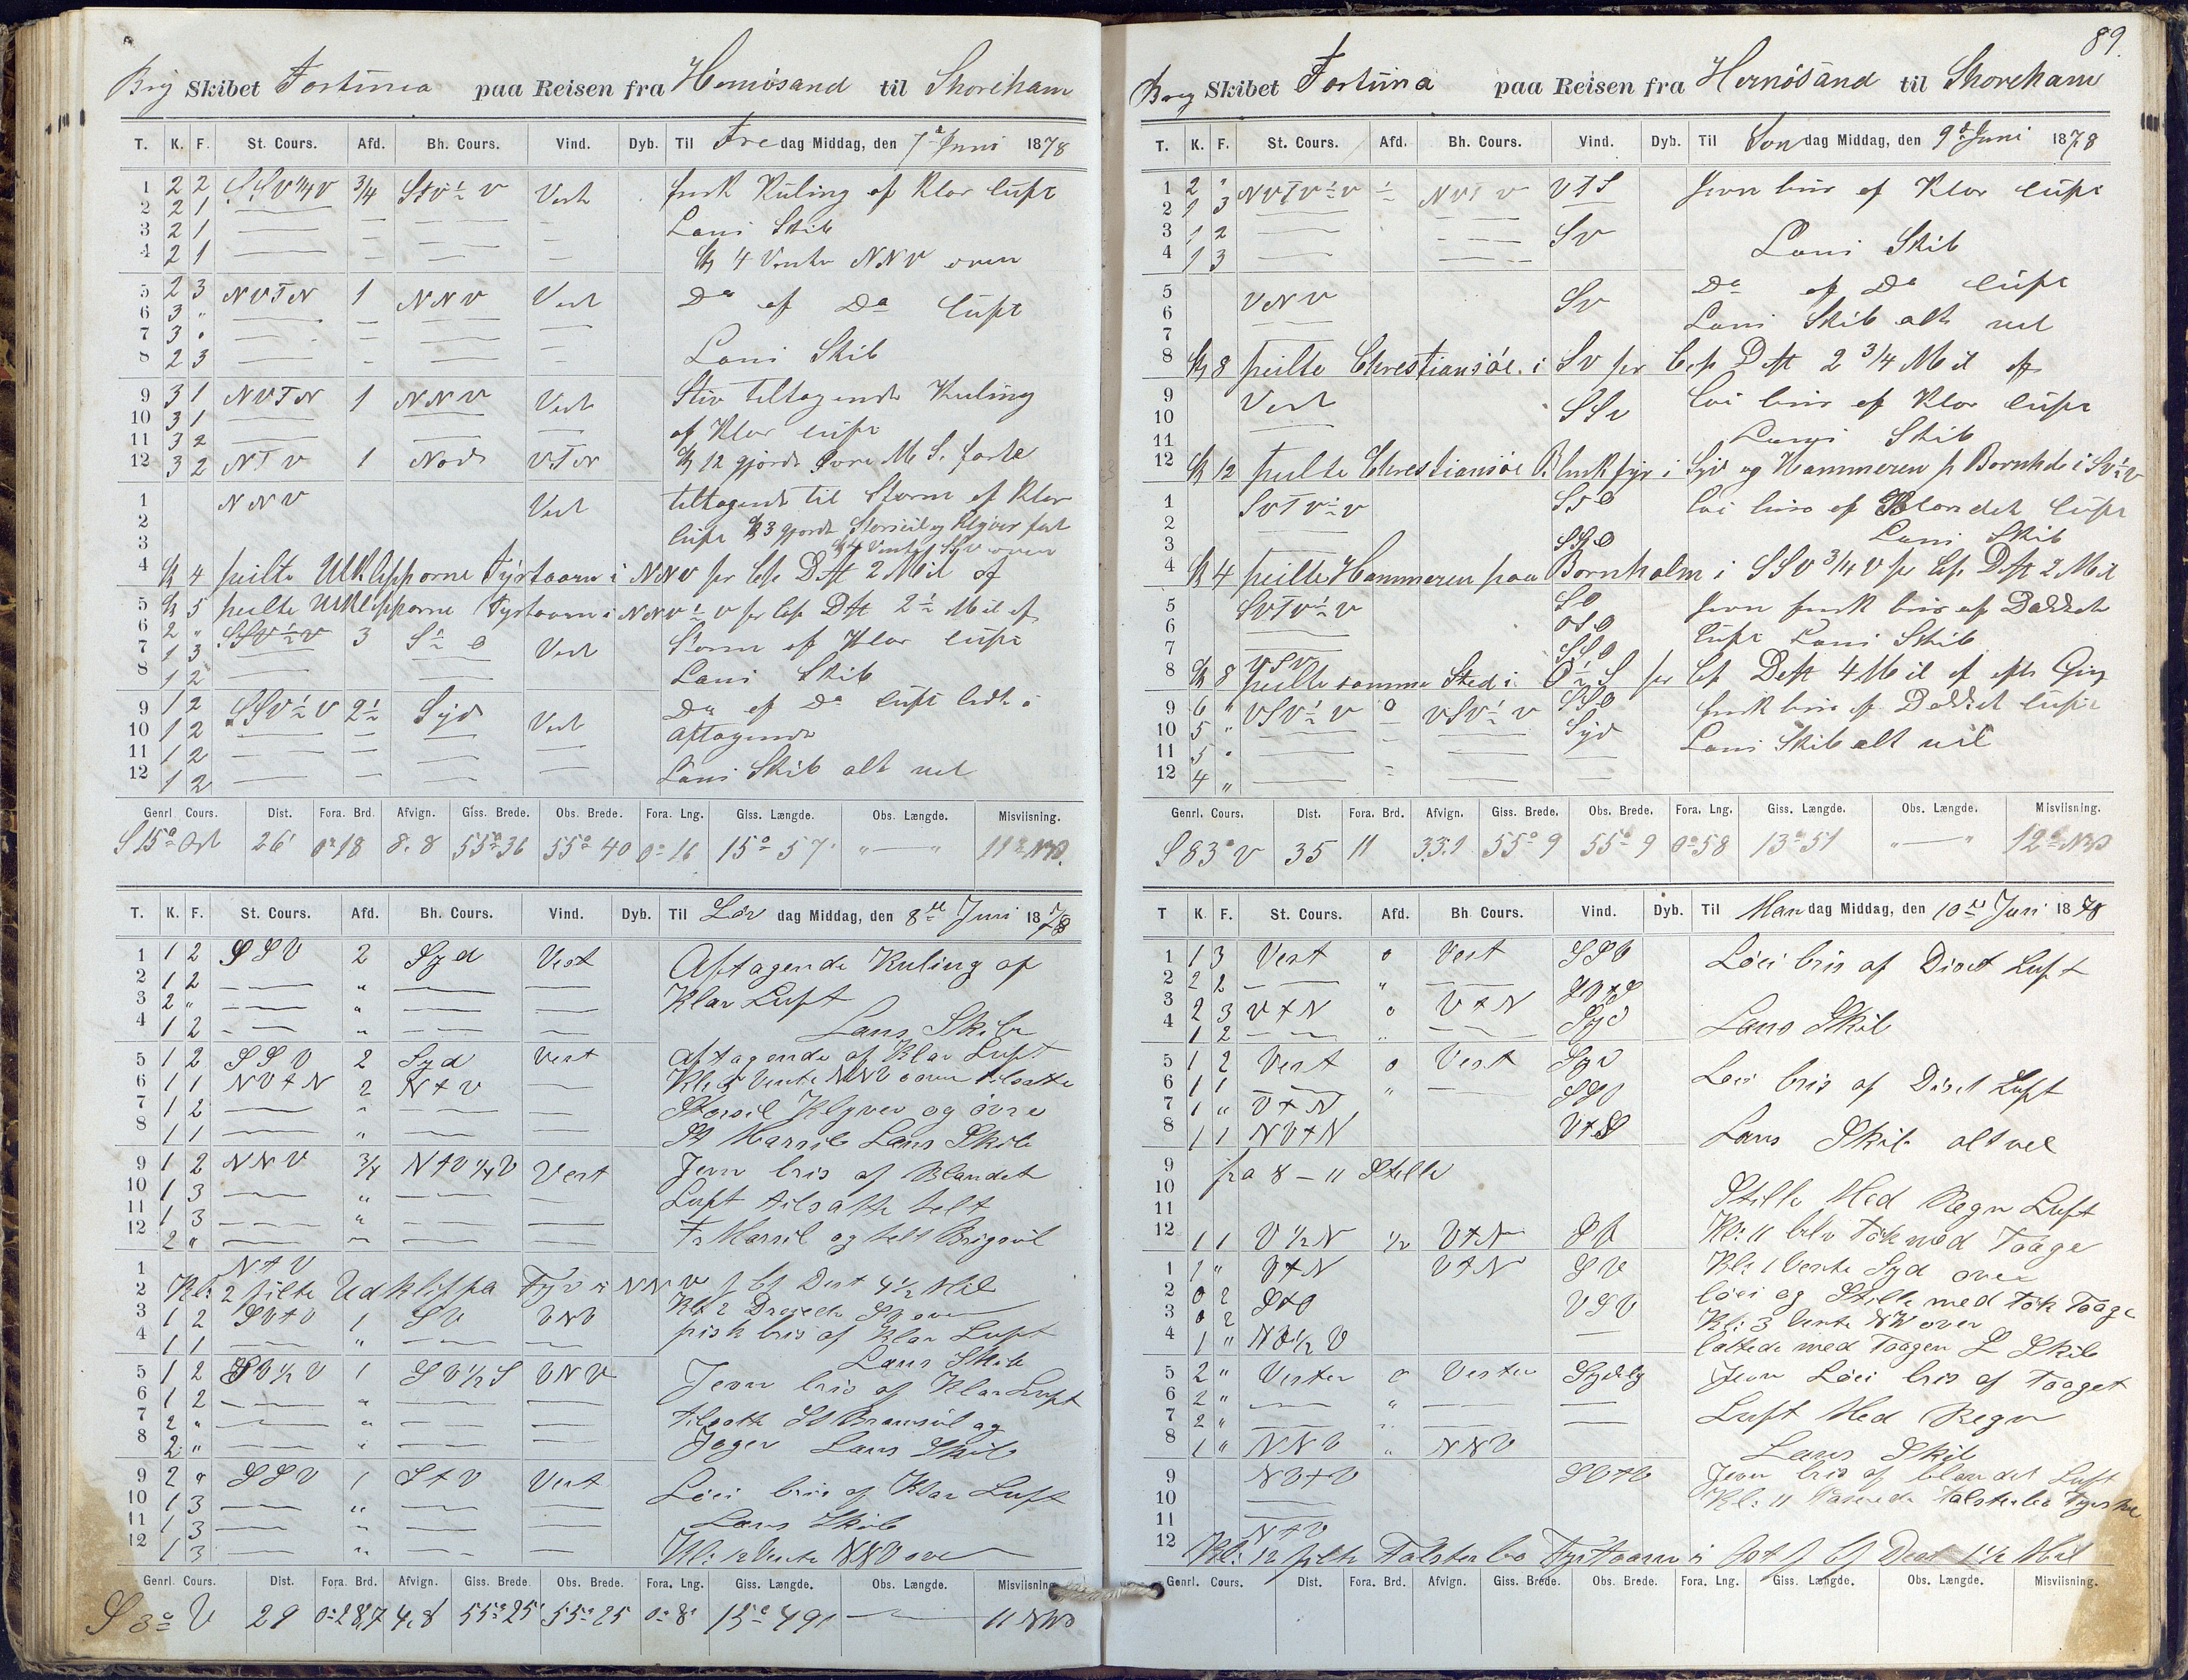 Brig Skibet Fortuna paa Reisen fra Hernösand til Shoreham
T. K. F. St. Cours. Afd. Bh. Cours. Vind. Dyb. Til Fredag Middag, den 7de Juni 1878
1 2 2 SSV¼V ¾ StV½V Vest frisk Kuling af Klar luft
2 2 1
3 2 1 Lens Skib
4 2 1 Kl 4 Vendte NNV over
5 2 3 NVTN 1 NNV Vest Do af Do luft
6 3 "
7 3 "
8 2 3 Lens Skib
9 3 1 NVTN 1 NNV Vest Stiv tiltagende Kuling
10 3 1 af Klar luft
11 3 2
12 3 2 NTV 1 Nord VTN Kl 12 gjorde Øvre M S. faste
1 NNV Vest tiltagende til Storm af Klar
2 luft Kl 3 gjorde Storseil og Klyver fast
3 Kl 4 Vendte SV over
4 Kl 4 peilte Utklipporne Fyrtaarn i NNV pr Cps Dist 2 Mil af
5 Kl 5 peilte Utklipporne Fyrtaarn i NNV½V pr Cps Dist 2½ Mil af
6 2 " SSV½V 3 S½O Vest Storm af Klar luft
7 1 3
8 1 2 Lens Skib
9 1 2 SSV½V 2½ Syd Vest Do af Do luft lidt i
10 1 2 aftagende
11 1 2
12 1 2 Lens Skib alt vel
Genrl. Cours. Dist. Fora. Brd. Afvign. Giss. Brede. Obs. Brede. Fora. Lng. Giss. Længde. Obs. Længde. Misviisning.
S 15° Ost 26 0°18 8.8 55°36 55°40 0°16 15°57 " — " 11° NV
T. K. F. St. Cours. Afd. Bh. Cours. Vind. Dyb. Til Lördag Middag, den 8de Juni 1878
1 1 2 SSV 2 Syd Vest Aftagende Kuling af
2 1 2 "
3 2 " " Klar Luft
4 1 2 " Lens Skib
5 1 2 SSV 2 Syd Vest aftagende af Klar Luft
6 1 1 NVtN 2 NtV Kl: 5 Vendte NNV over tilsatte
7 1 2 " Storseil Klyver og övre
8 1 1 " St Marseil Lens Skib
9 1 2 NNV ¾ NtV¼V Vest Jevn bris af Blandet
10 1 3 " Luft tilsatte helt
11 1 3 "
12 2 " Fr Marseil og helt Brigseil
1 NtV
2 Kl: 2 pilte Udklippa Fyr i NNV p Cp Dist 4½ Mil
3 1 2 SVtV 1 SV VNV Kl 2 Dreiede SV over
4 1 1 " frisk bris af Klar Luft
Lens Skib
5 1 2 SV½V 1 SV½S VNV Jevn bris af Klar Luft
6 1 2 "
7 2 " " tilsatte St Bramseil og
8 2 " " Jager Lens Skib
9 2 " SSV 1 StV Vest Löei bris af Klar Luft
10 1 3 "
11 1 3 " Lens Skib
12 1 3 " Kl: 12 Vendte NNV over
Genrl. Cours. Dist. Fora. Brd. Afvign. Giss. Brede. Obs. Brede. Fora. Lng. Giss. Længde. Obs. Længde. Misviisning.
S 3° V 29 0°28,7 4,8 55°25' 55°25 0°8' 15°49' 11 NV
89.
Brig Skibet Fortuna paa Reisen fra Hernösand til Shoreham
T. K. F. St. Cours. Afd. Bh. Cours. Vind. Dyb. Til Söndag Middag, den 9de Juni 1878
1 2 " NVTV½V ½ NVTV VTS Jevn bris af Klar luft
2 1 3
3 1 2 SV
4 1 3 Lens Skib
5 VNV SV Do af Do luft
6
7 Lens Skib alt vel
8 Kl 8 peilte Chrestiansöe i SV pr Cps Dist 2¾ Mil af
9 Vest SSV löi bris af Klar luft
10
11 Lens Skib
12 Kl 12 peilte Chrestiansöe Blinkfyr i Syd og Hammeren p Bornholm i SV½V
1 SVTV½V löi bris af Blandet luft
2
3 SSO Lens Skib
4 Kl 4 peilte Hammeren paa Bornholm i SSV¾V pr Cps Dist 2 Mil
5 SVTV½V SO Jevn frisk bris af Dækket
6 OSO
7 SSO luft Lens Skib
8 VSV
Kl 8 peilte samme Sted i O½S pr Cps Dist 4 Mil af
9 6 " VSV½V 0 VSV½V SSO frisk bris af Dækket luft
10 5 " Syd
11 5 " Lens Skib alt vel
12 4 "
Genrl. Cours. Dist. Fora. Brd. Afvign. Giss. Brede. Obs. Brede. Fora. Lng. Giss. Længde. Obs. Længde. Misviisning.
S 83° V 35 11 33.1 55°9 55°9 0°58 13°51 " — " 12° NV
T K. F. St. Cours. Afd. Bh. Cours. Vind. Dyb. Til Mandag Middag, den 10de Juni 1878
1 1 3 Vest 0 Vest SSV Löei bris af Diset Luft
2 2 2 "
3 2 3 VtN 0 VtN SVtS
4 1 2 Syd Lens Skib
5 1 2 Vest 0 Vest Syd Löei bris af Diset Luft
6 1 1 "
7 1 " VtN
8 1 1 NVtN VtS Lens Skib alt vel
9 fra 8 – 11 Stille
10 Stille Med Regn Luft
11 Kl: 11 blev Tök med Taage
12 1 1 V½N ½ VtN SV
1 1 " VtN VtN SV Kl: 1 Vendte Syd over
2 0 2 StO VSV löei og Stille med tök Taage
3 0 2 Kl: 3 Vendte NV over
4 1 " lættede med Taagen L Skib
5 2 " Vester 0 Vester Sydlig Jevn Löei bris af Taaget
6 2 " "
7 2 " " Luft Med Regn
8 1 " NNV " NNV Lens Skib
9 NVtV SVtV Jevn bris af blandet Luft
10 Kl: 11 Passerede Falsterbo
11 NtV
12 Kl: 12 pilte Falsterbo Fyrtaarn i Ost p Cp Dist 1½ Mil
Genrl. Cours. Dist. Fora. Brd. Afvign. Giss. Brede. Obs. Brede. Fora. Lng. Giss. Længde. Obs. Længde. Misviisning.